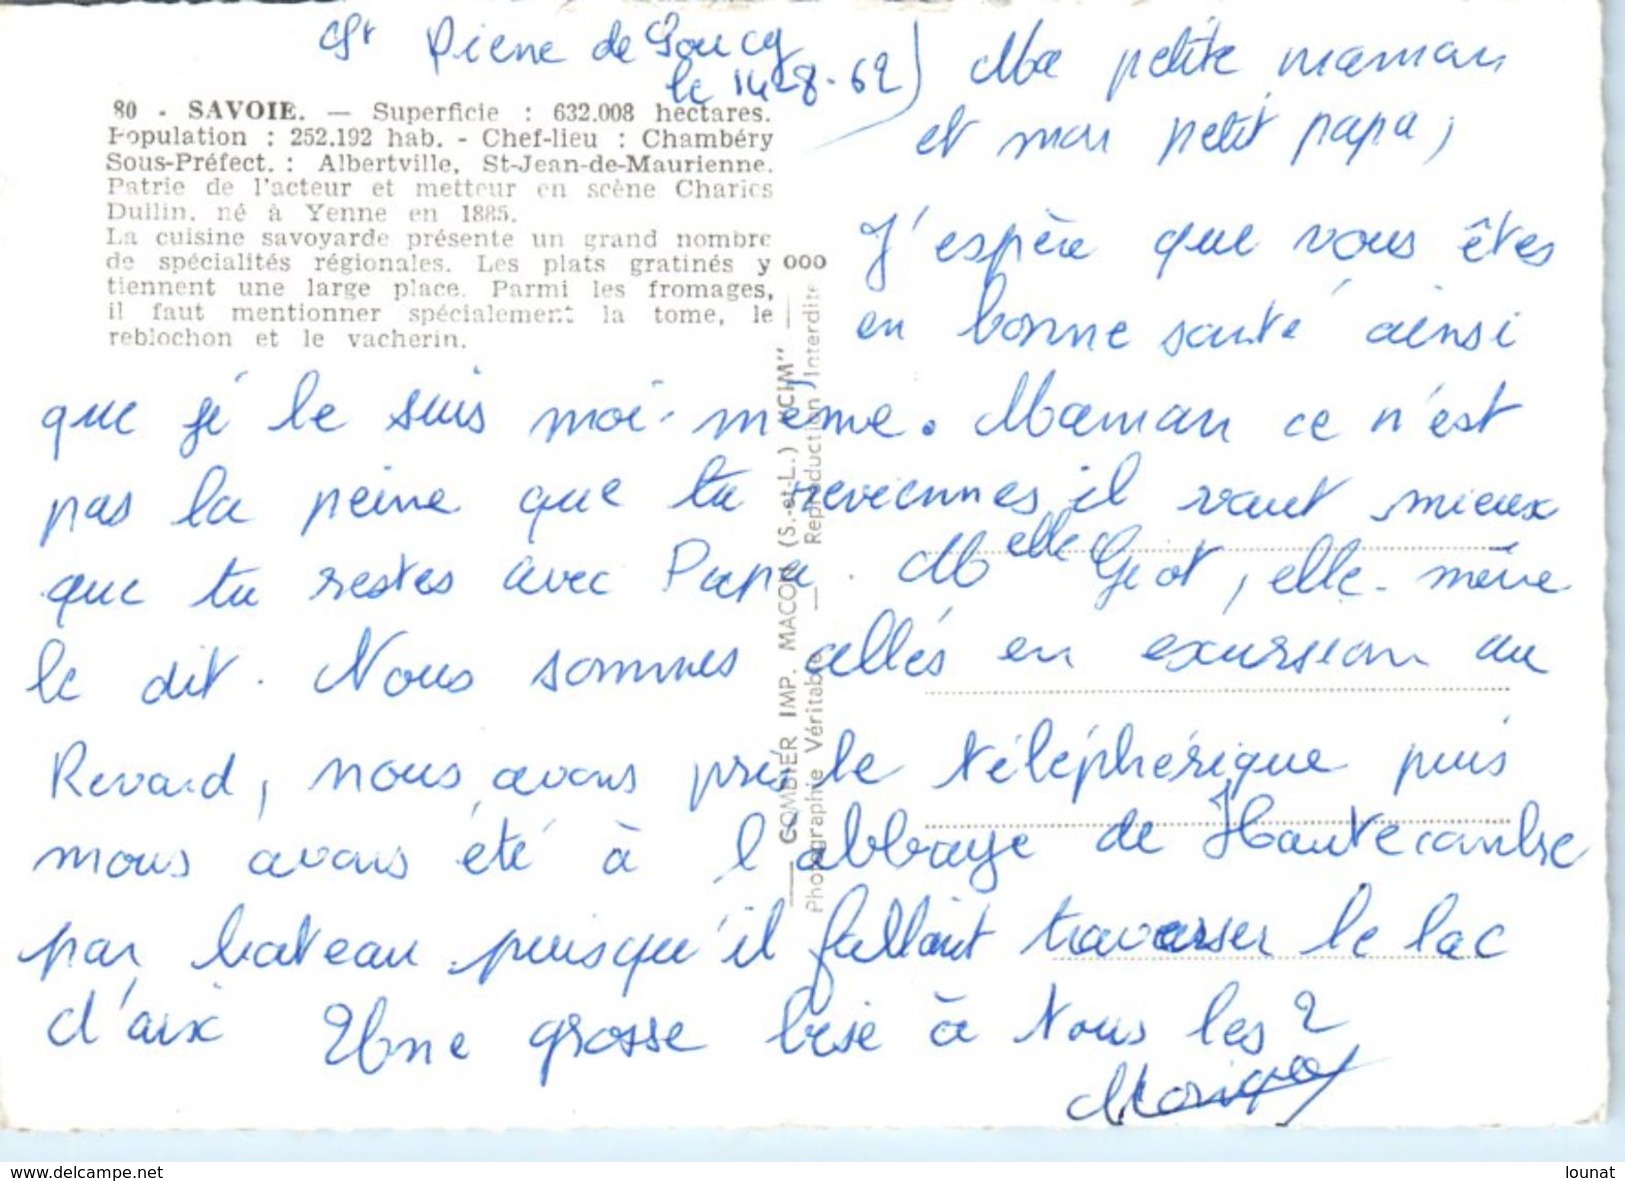 St Pierre de Soucy
le 14-8-62
Ma petite maman
et mon petit papa,
80 - SAVOIE. — Superficie : 632.008 hectares.
Population : 252.192 hab. - Chef-lieu : Chambéry
Sous-Préfect. : Albertville, St-Jean-de-Maurienne.
Patrie de l'acteur et metteur en scène Charles
Dullin, né à Yenne en 1885.
La cuisine savoyarde présente un grand nombre
de spécialités régionales. Les plats gratinés y
tiennent une large place. Parmi les fromages,
il faut mentionner spécialement la tome, le
reblochon et le vacherin.
000
— COMBIER IMP. MACON (S.-et-L.) "CIM"
Photographie Véritable — Reproduction Interdite
J'espère que vous êtes
en bonne santé ainsi
que je le suis moi-même. Maman ce n'est
pas la peine que tu reviennes il vaut mieux
que tu restes avec Papa. Melle Giot, elle-même
le dit. Nous sommes allés en excursion au
Revard, nous avons pris le téléphérique puis
nous avons été à l'abbaye de Hautecombe
par bateau puisqu'il fallait traverser le lac
d'aix Une grosse bise à tous les 2
Monique
www.delcampe.net
lounat